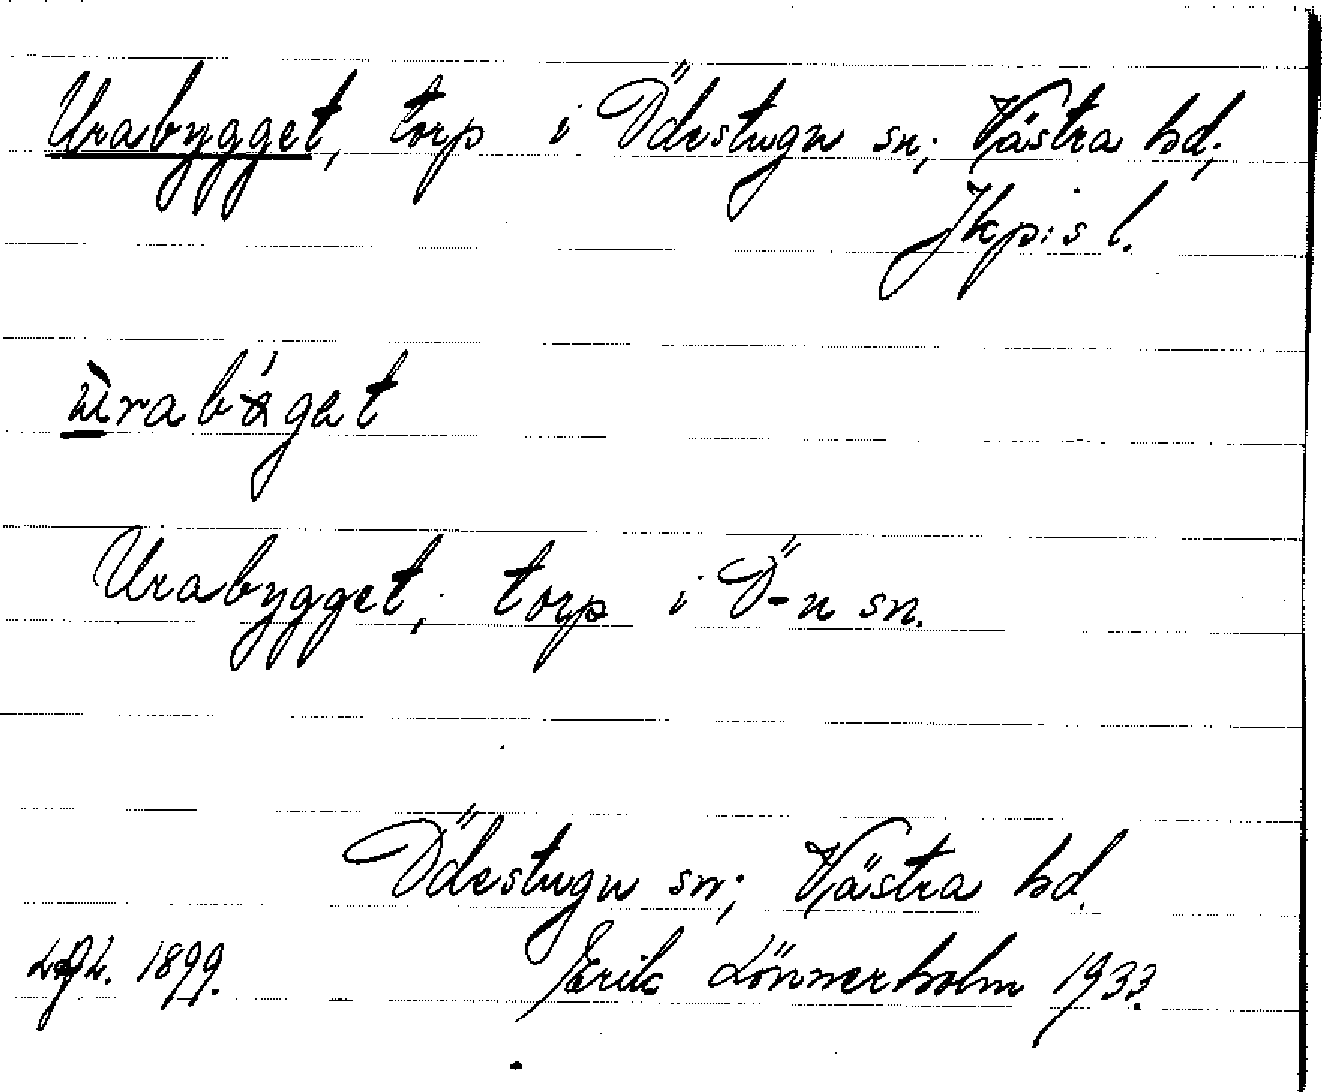 Urabygget, torp i Ödestugu sn; Västra hd;
Jkp:s l.
Urabygget, torp i Ö-u sn.
Ödestugu sn; Västra hd.
1899. Erik Lönnerholm 1933.